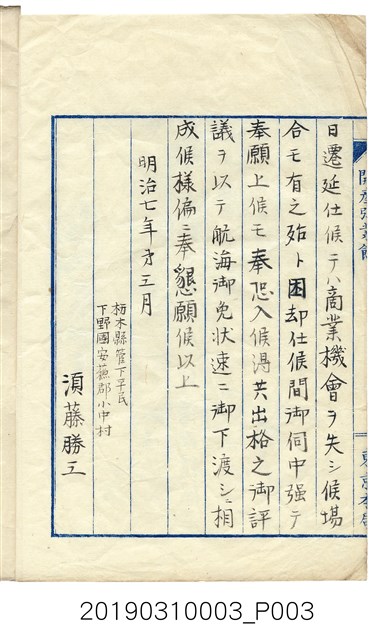 日遷延仕候テハ商業機會ヲ失シ候場
合モ有之殆ト困却仕候間御伺中强テ
奉願上候モ奉恐入候得共出格之御評
議ヲ以テ航海御免状速ニ御下渡シニ相
成候様偏ニ奉懇願候以上
明治七年第三月
栃木縣管下平民
下野國安蘓郡小中村
須藤勝三
20190310003_P003